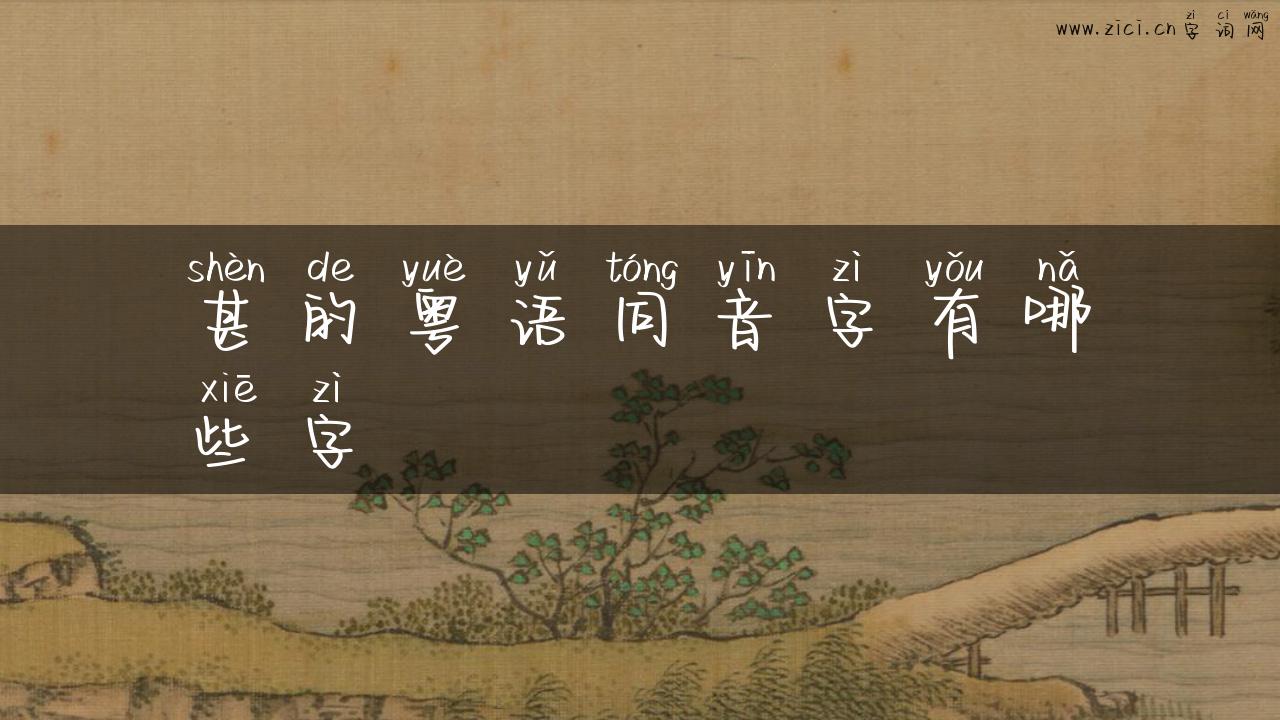 zì cí wǎng
www.zici.cn 字词网
shèn de yuè yǔ tóng yīn zì yǒu nǎ
甚的粤语同音字有哪
xiē zì
些字